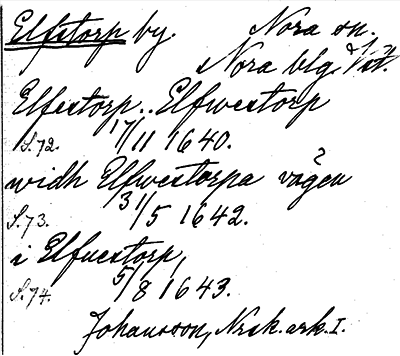 Elfstorp by. Nora sn.
Nora blg. Vstm.
Elfestorp.. Elfwestorp
S. 72. 17/11 1640.
widh Elfwestorpa vägen
?
S. 73. 31/5 1642.
i Elfuestorp,
S. 74. 5/8 1643.
Johansson, Nrsk. ark. I.